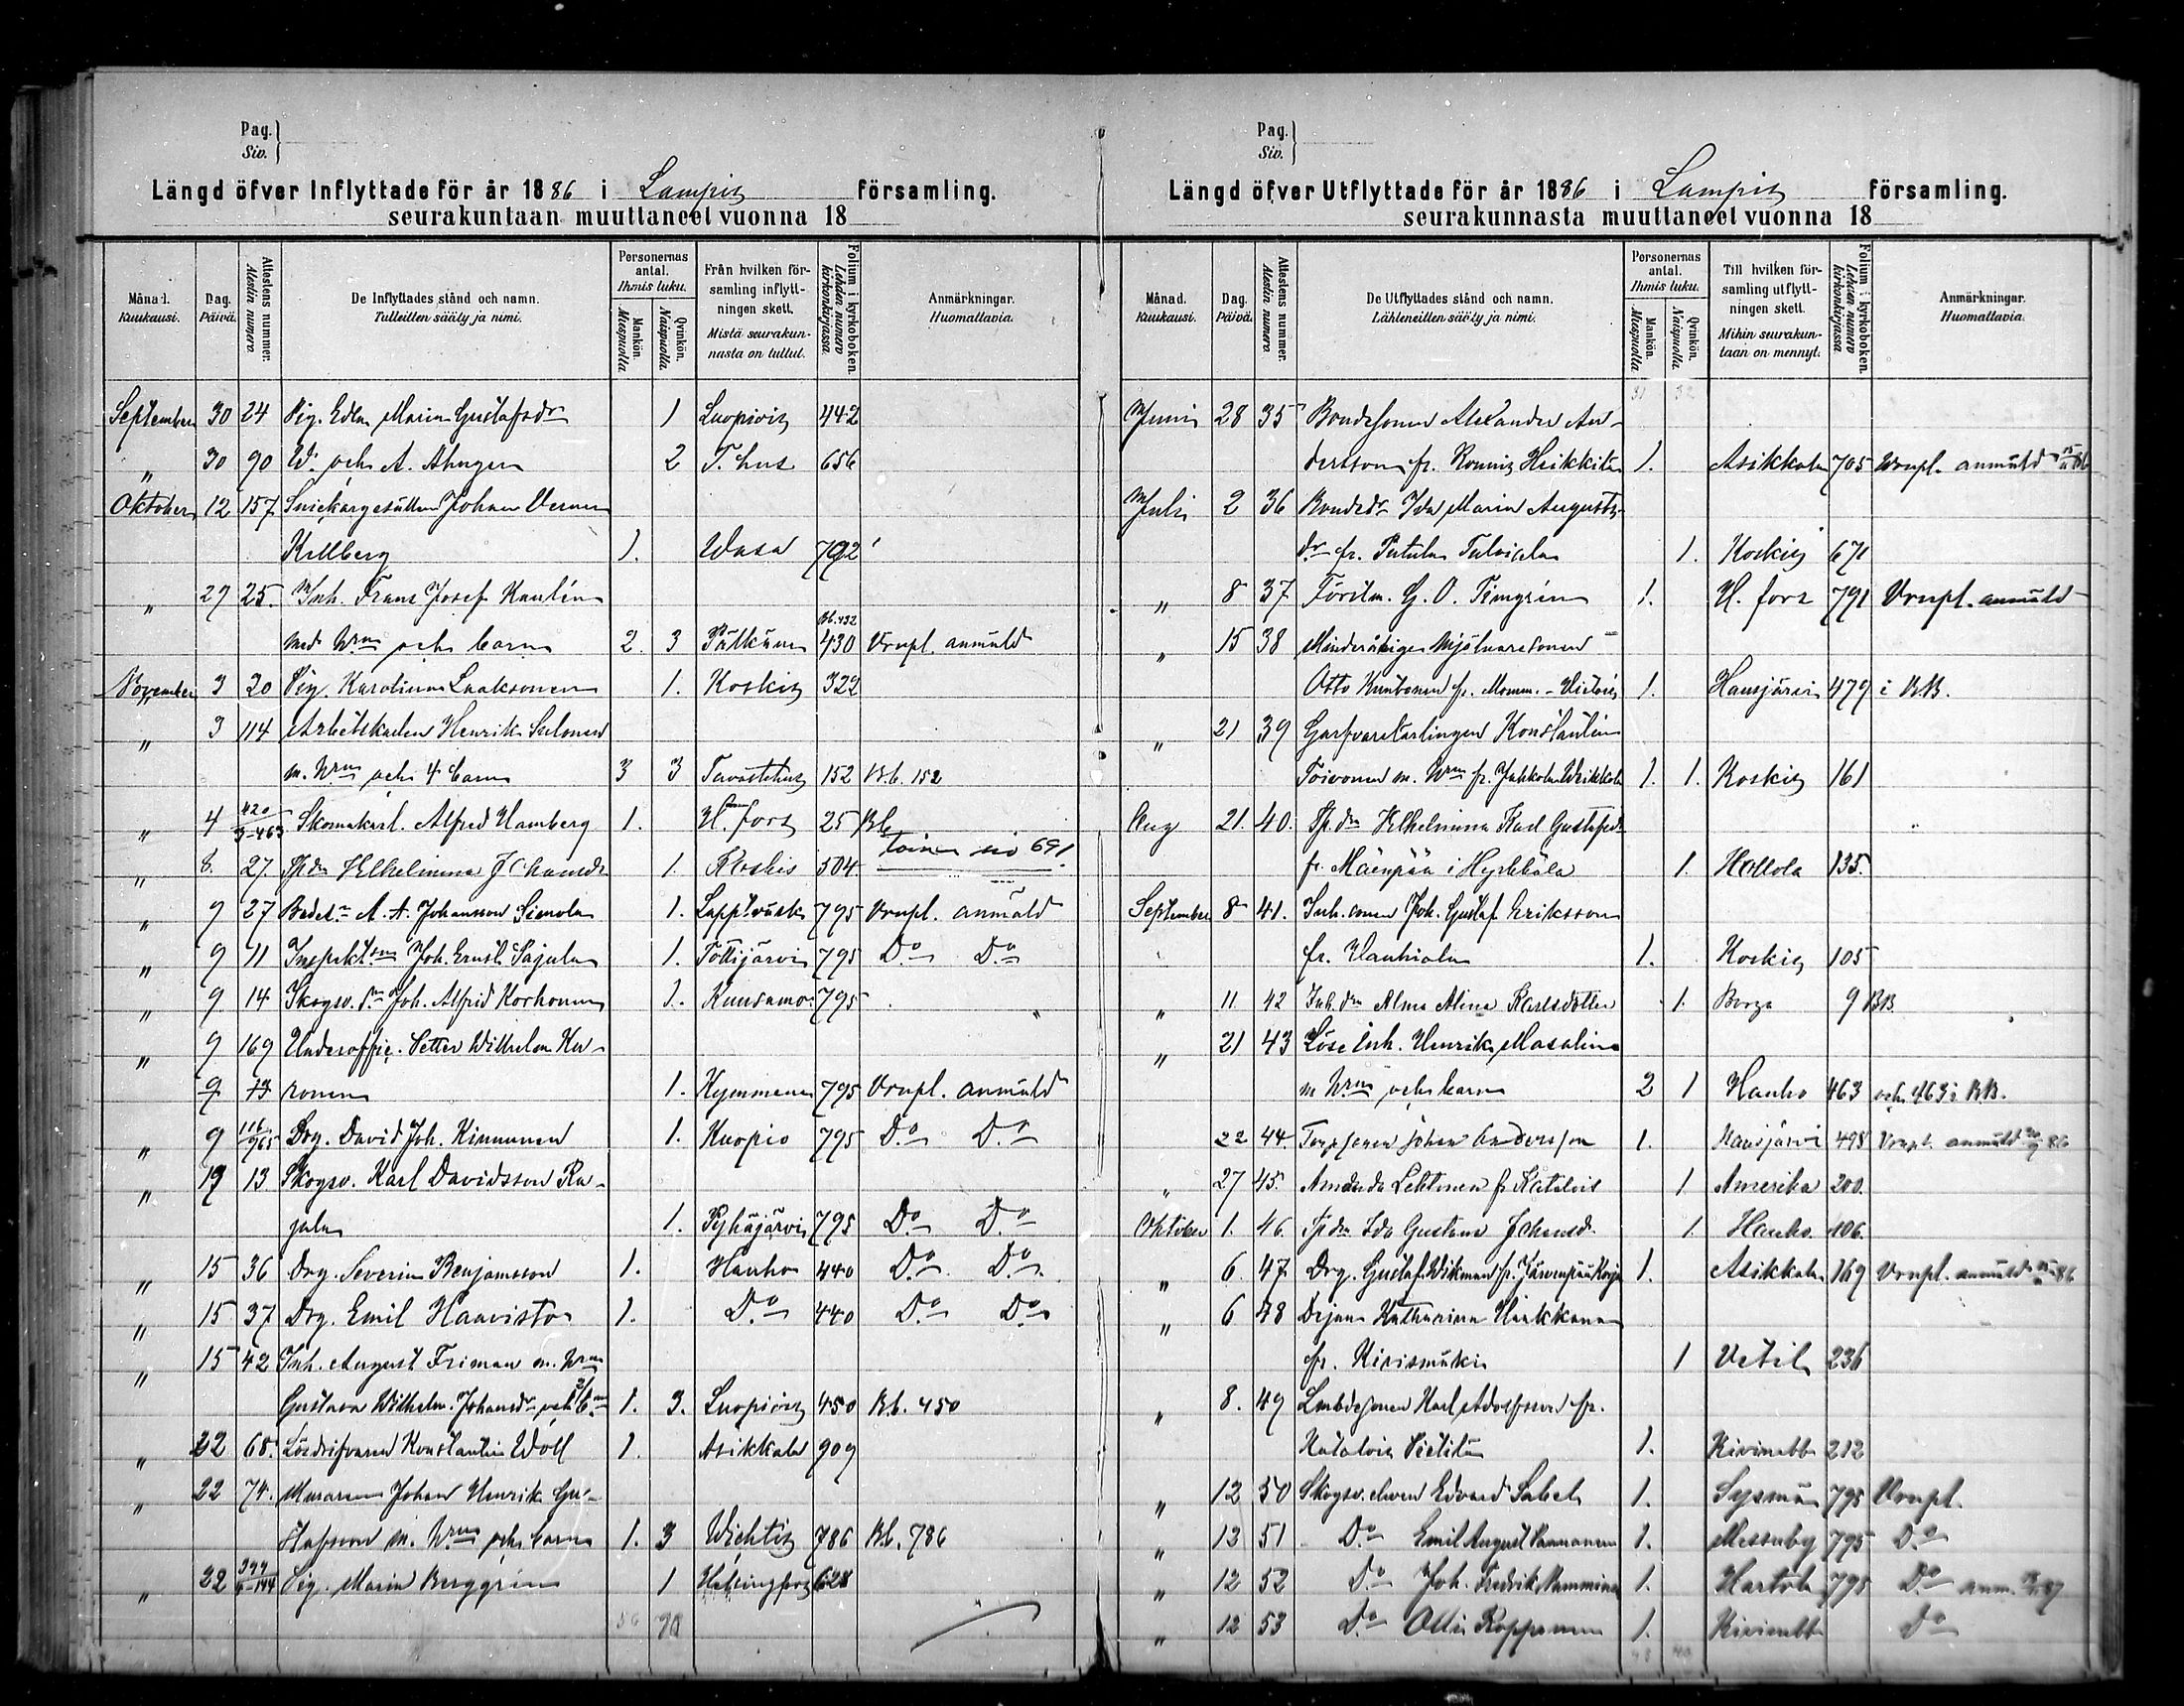 Pag.
Siv.
Längd öfver Inflyttade för år 1886 i Lampis församling.
seurakuntaan muuttaneet vuonna 18
Månad. Kuukausi.
Dag. Päivä.
Attestens nummer. Atestin numero.
De Inflyttades stånd och namn.
Tulleitten sääty ja nimi.
Personernas antal. Ihmis luku.
Mankön. Miespuolia.
Qvinkön. Naispuolia.
Från hvilken församling inflyttningen skett.
Mistä seurakunnasta on tullut.
Folium i kyrkoboken. Lehden numero kirkonkirjassa.
Anmärkningar. Huomattavia.
September 30 24 Pig. Edla Maria Gustafsdr 1 Luopiois 442
" 30 90 W. och A. Ahngren 2 T. hus 656
Oktober 12 157 Snickargesällen Johan Verner
Kellberg 1. Wasa 792
" 27 25. Inh. Frans Josef Kaulin
Bb. 432
med hrun och barn 2. 3 Pälkäne 430 Vrnpl. anmäld
November 3 20 Pig. Karolina Laaksonen 1. Koskis 322
" 3 114 Arbetskarlen Henrik Salonen
m. hrun och 4 barn 3 3 Tavastehus 152 Bb. 152
" 4 420 3-463 Skomakarl. Alfred Hamberg 1. H.fors 25 Bb
" 8. 27. Sp.dr Wilhelmina Johansdr 1. Koskis 504. 691
" 9 27 A. A. Johansson Simola 1. Lappträsk 795 Vrnpl. anmäld
" 9 11 Inspekt. Joh. Ernst Pajula 1. Tottijärvi 795 Do Do
" 9 14 Skogsv. Joh. Alfrid Korhonen 1. Kuusamo 795 "
" 9 169 Underoffic. Petter Wilhelm Ku-
9 13 ronen 1. Kymmene 795 Vrnpl. anmäld
" 9 116 965 Drg. David Joh. Kinnunen 1. Kuopio 795 Do Do
" 19 13 Skogsv. Karl Davidsson Ra-
jala 1. Pyhäjärvi 795 Do Do
" 15 36 Drg. Severin Benjamsson 1. Hauho 440 Do Do
" 15 37 Drg. Emil Haavisto 1. Do 440 Do Do
" 15 42 Inh. August Friman m. hrun
Gustava Wilhelm. Johansdr och 2 b. 1. 3. Luopiois 450 Bb. 450
" 22 68. Lösdrifvaren Konstantin Woll 1. Asikkala 909
" 22 74. Muraren Johan Henrik Gu-
stafsson m. hrun och barn 1. 3 Wichtis 786 Bb. 786
" 22 Pig. Maria Berggrén 1 Helsingfors 628
56 70
Pag.
Siv.
Längd öfver Utflyttade för år 1886 i Lampis församling.
seurakunnasta muuttaneet vuonna 18
Månad. Kuukausi.
Dag. Päivä.
Attestens nummer. Atestin numero
De Utflyttades stånd och namn.
Lähteneitten sääty ja nimi.
Personernas antal. Ihmis luku.
Mankön. Miespuolia
Qvinkön. Naispuolia.
Till hvilken församling utflyttningen skett.
Mihin seurakuntaan on mennyt.
Folium i kyrkoboken. Lehden numero kirkonkirjassa
Anmärkningar. Huomattavia.
31 32
Juni 28 35 Bondesonen Alexander An-
dersson fr. Heikkilä 1. Asikkala 705 Vrnpl. anmäld
Juli 2 36 Bondedr Ida Maria Augusts-
dr fr. Putula 1. Koskis 671
" 8 37 Förstm. G. O. Timgrén 1. H. fors 791 Vrnpl. anmäld
" 15 38 Minderårige Mjölnaresonen
Otto fr. 1. Hausjärvi 479 i BB.
" 21 39 Garfvarelärlingen Konstantin
Toivonen m. hrun fr. 1. 1. Koskis 161
Aug 21. 40. Sp.dr Wilhelmina Karl Gustafsdr
fr. Mäenpää i Hyrkkälä 1. Hollola 135.
September 8 41. Inh. sonen Joh. Gustaf Eriksson
fr. Hauhiala 1. Koskis 105
" 11. 42 Inh. dr Alma Alina Karlsdotter 1. Borgå 9 BB.
" 21 43 Löse inh. Henrik Masalin
m hrun och barn 2 1 Hauho 463 och 463 i BB.
22 44. Torpsonen Johan Andersson 1. Hausjärvi 498 Vrnpl. anmäld
" 27 45. Amanda Lehtonen fr Katalois 1 Amerika 200.
Oktober 1. 46. Sp dr Ida Gustava Johansd. 1. Hauho. 106.
" 6. 47. Drg. Gustaf Wikman fr. Järvenpää 1. Asikkala 169 Vrnpl. anmäld
" 6 48 Dejan Katharina Hiukkana
fr. Kivismäki 1 Vetil 236
" 8. 49 Karl Adolfsson fr.
Katalois Pietilä 1. Kivinebb 212
" 12 50 Skogsv. eleven Edvard Sabel 1. Sysmä 795 Vrnpl.
" 12 51 Do Emil August 1. Messuby 795 Do
" 12 52 Do Joh. Fredrik 1. Hartola 795 Do anm.
" 12 53 Do Otto Ropponen 1. Kivinebb Do